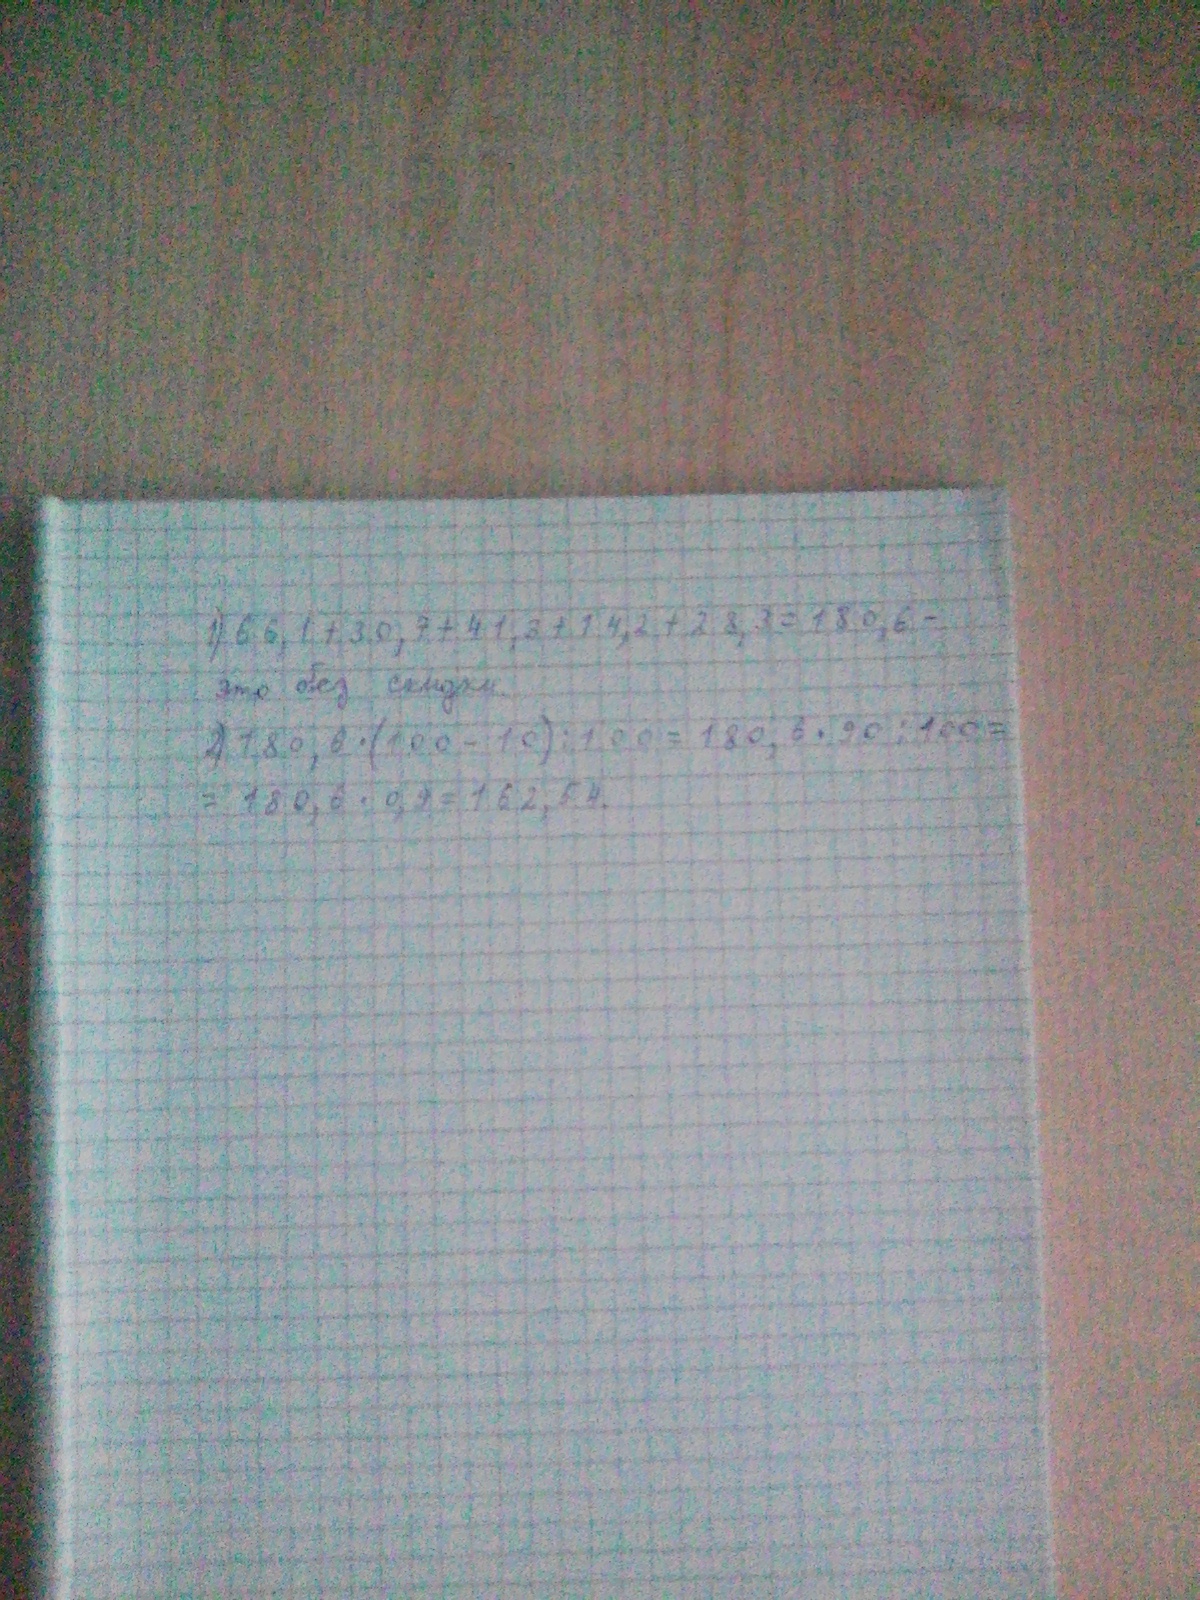 1) 66,1+30,7+41,3+14,2+28,3=180,6-
это без скидки.
2) 180,6·(100-10):100=180,6·90:100=
= 180,6·0,9=162,54.